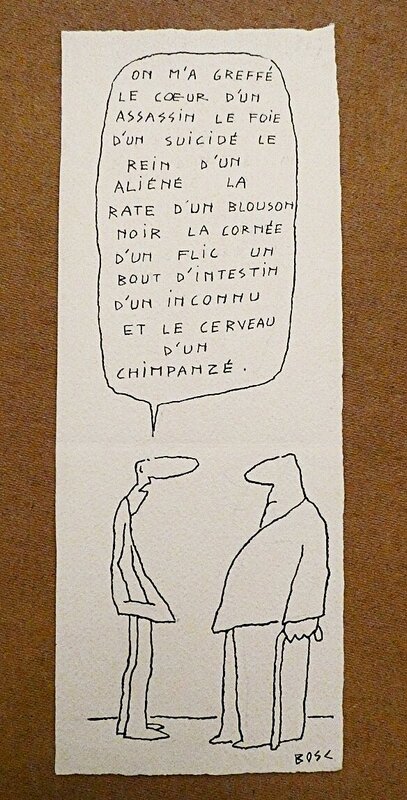 ON M'A GREFFÉ
LE CŒUR D'UN
ASSASSIN LE FOIE
D'UN SUICIDÉ LE
REIN D'UN
ALIÉNÉ LA
RATE D'UN BLOUSON
NOIR LA CORNÉE
D'UN FLIC UN
BOUT D'INTESTIN
D'UN INCONNU
ET LE CERVEAU
D'UN
CHIMPANZÉ.
BOSC